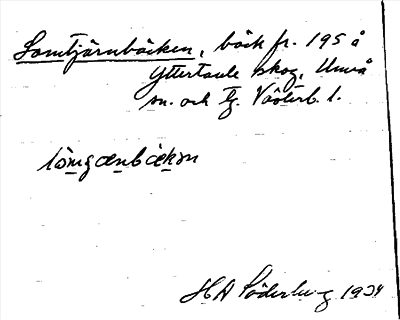 Lomtjärnbäcken, bäck fr. 195 å
Yttertavle skog, Umeå
sn. och tg. Västerb. l.
lömgænbækən
HA Söderberg 1934